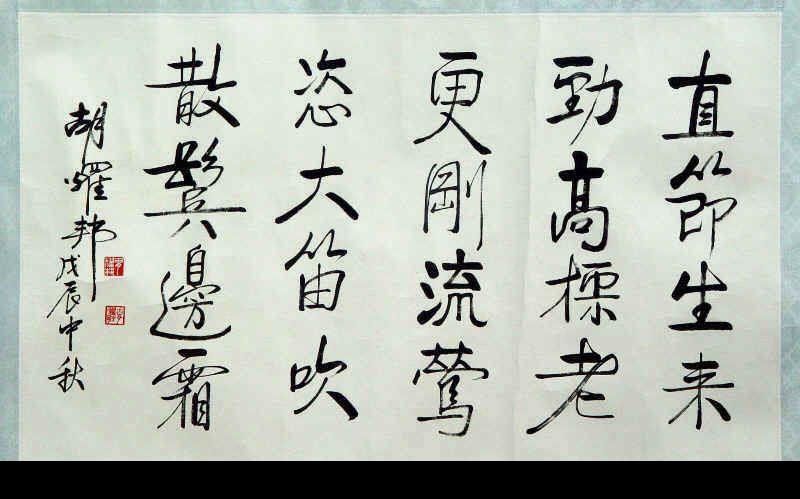 直節生来
勁高標老
更剛流鶯
恣大笛吹
散鬢邊霜
胡耀邦
戊辰中秋